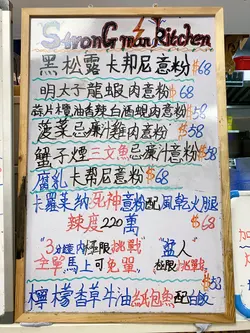 StronG man kitchen
黑松露卡邦尼意粉$68
明太子龍蝦肉意粉$68
蒜片欖油香辣白酒蝦肉意粉$58
菠菜忌廉汁雞肉意粉$58
蟹子煙三文魚忌廉汁意粉$58
腐乳卡賓尼意粉$68
卡羅萊納死神意粉配風乾火腿
辣度220萬 $68
"3分鐘內極限挑戰" "猛人"
全單馬上可免單, 極限挑戰
檸檬香草牛油 包魚配白飯 $58